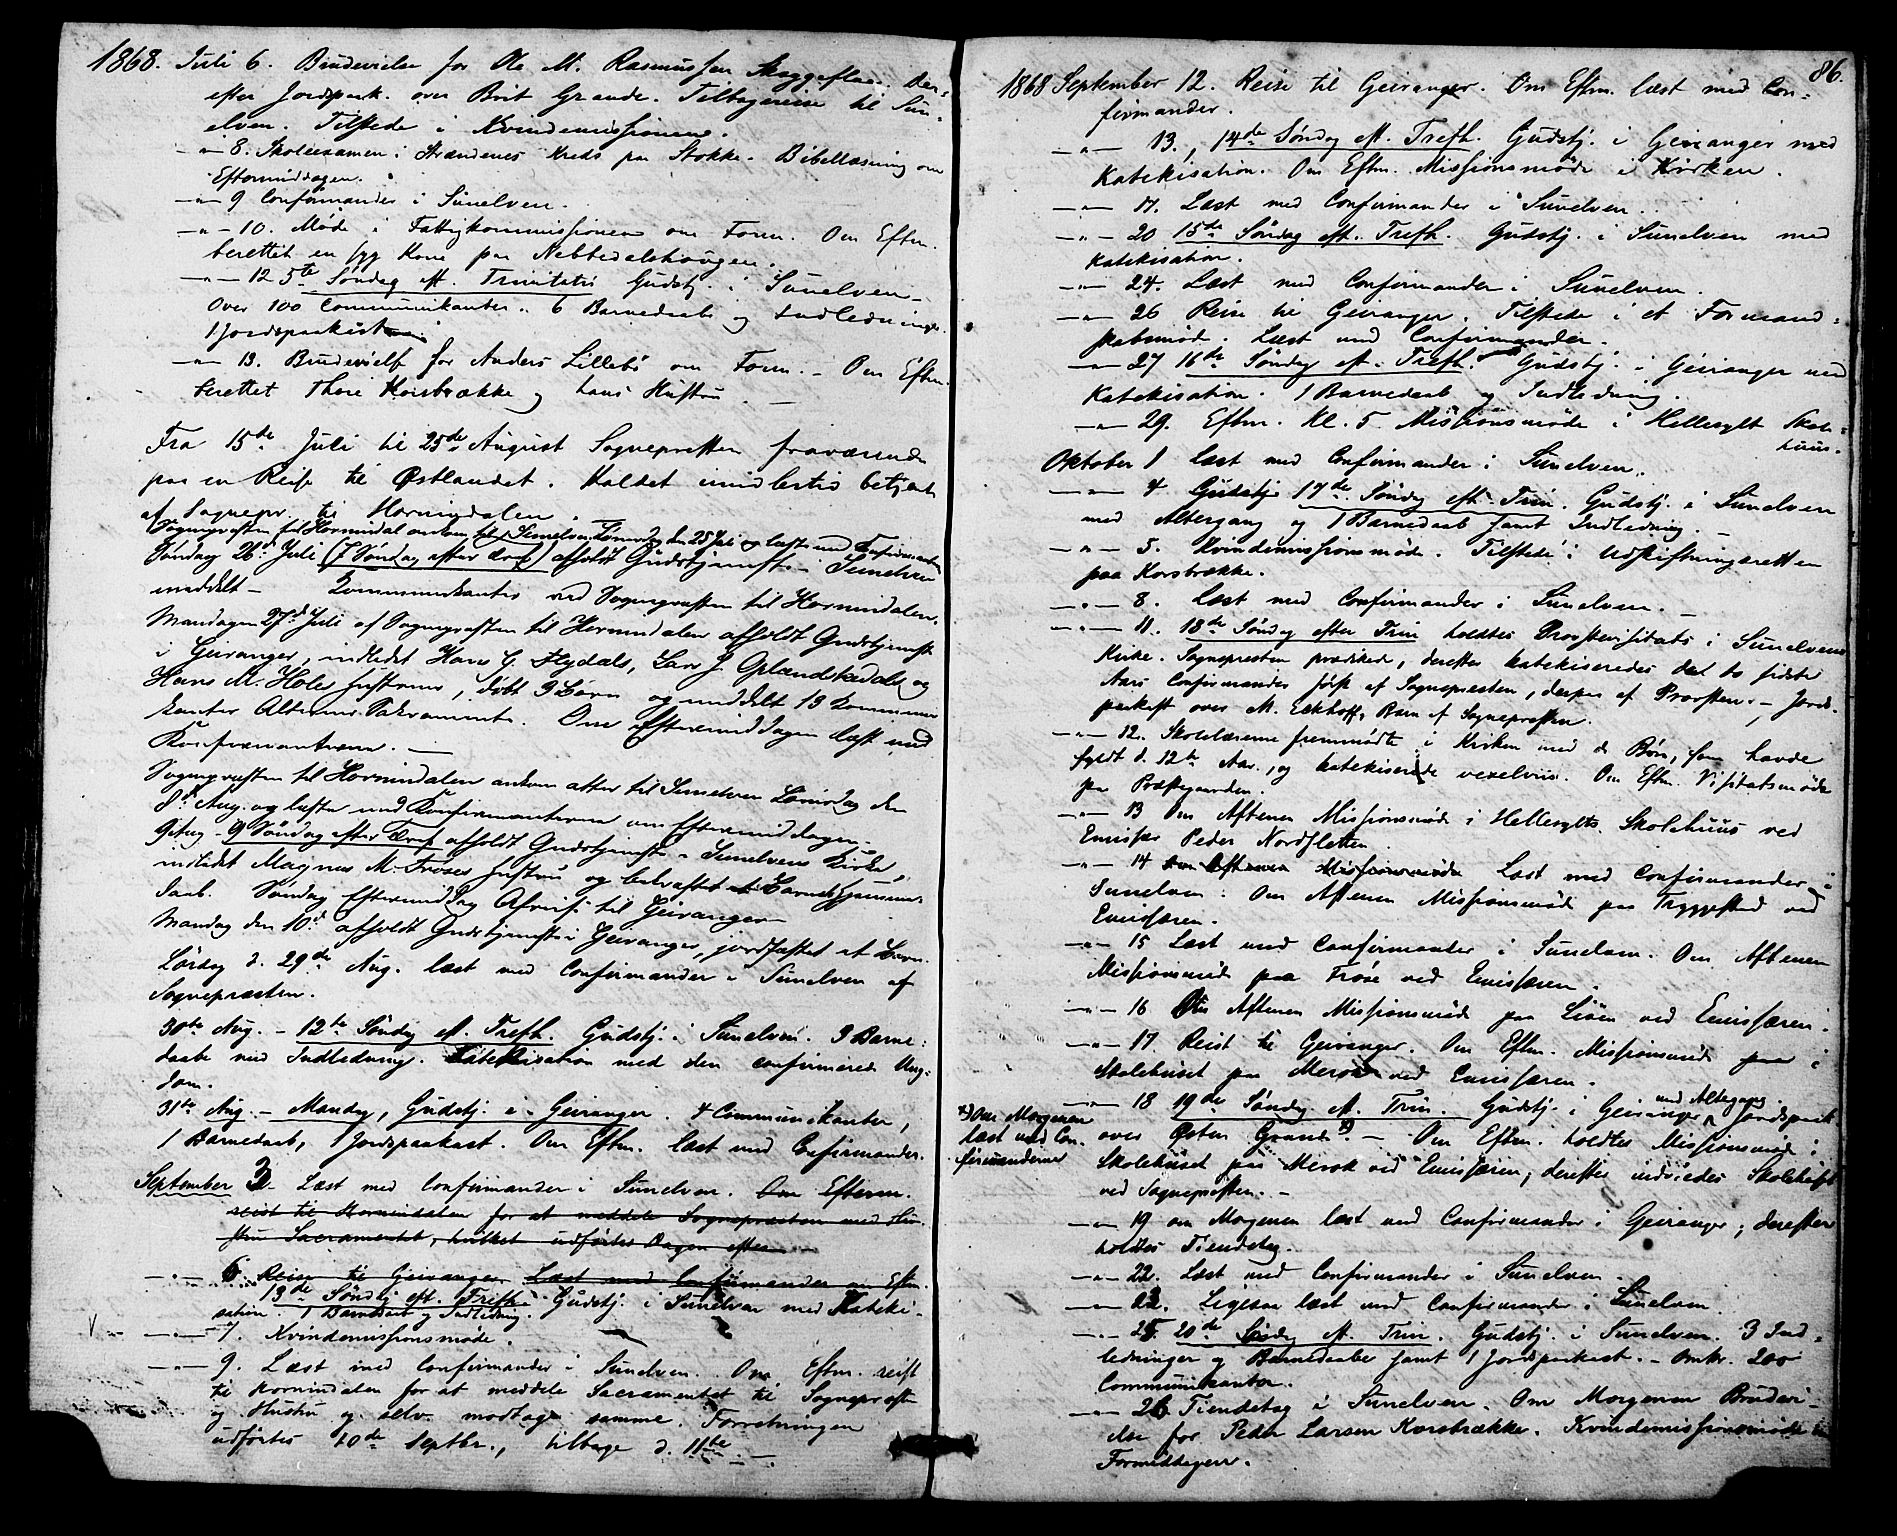 1868. Juli 6. Brudevielse for Ole M. Rasmussen Skaggeflaa. Der-
efter Jordspaak. over Brit Grande. Tilbagereise til Sun-
elven. Tilstede i Kvindemissionen.
-"- 8. Skoleexamen i Strandenes Kreds paa Stokke. Bibellæsning om
Eftermiddagen.
-"- 9 Confirmander i Sunelven.
-"- 10. Møde i Fattigkommissionen om Form. Om Eftm.
berettet en syg Kone paa Nebbedalshougen.
-"- 12 5te Søndag eft. Trinitatis Gudstj. i Sunelven
over 100 Communikanter. 6 Barnedaab og Indledninger
1 Jordspaakast
-"- 13. Brudevielse for Anders Lillebø om Form. - Om Eftm.
berettet Thore Korsbrække og hans Hustru. -
Fra 15de Juli til 25de August Sognepresten fraværende
paa en Reise til Østlandet. Kaldet imidlertid betjent
af Sognepr. til Hornindalen.
Sognepræsten til Hornindal ankom til Sunelven Lørdag den 25 Juli og læste med Confirmanterne
Søndag 26d Juli (7 Søndag efter Tref) afholdt Gudstjeneste i Sunelven
meddelt - Kommunikanter ved Sognepræsten til Hornindalen.
Mandagen 27d Juli af Sognepræsten til Hornindalen afholdt Gudstjeneste
i Geiranger, indledet Hans G. Flydals, Lars J. Oplandskedals og
Hans M. Holes Hustruer, døbt 3 Børn og meddelt 13 Kommuni-
kanter Alterens Sakramente. Om Eftermiddagen læst med
Konfirmanterne. -
Sognepræsten til Hornindalen ankom atter til Sunelven Lørdag den
8d Aug. og læste med Konfirmanterne om Eftermiddagen.
9 Aug - 9 Søndag efter Tref afholdt Gudstjeneste i Sunelvens Kirke,
indledet Magnus M. Frøses Hustru og bekræftet et Barns Hjemme-
daab. Søndag Eftermiddag Afreise til Geiranger
Mandag den 10d afholdt Gudstjeneste i Geiranger, jordfæstet et Barn.
Lørdag d. 29de Aug. læst med Confirmander i Sunelven af
Sognepræsten.
30te Aug. - 12te Søndag eft. Trefh. Gudstj. i Sunelven. 3 Barne-
daabe med Indledning. Katekisation med den confirmerede Ung-
dom.
31te Aug. - Mandag, Gudstj. i Geiranger. 4 Communikanter,
1 Barnedaab, 1 Jordspaakast. Om Eftm. læst med Confirmander.
September 3. Læst med Confirmander i Sunelven. Om Efterm.
reist til Hornindalen for at meddele Sognepræsten med Hu-
stru Sacramentet, hvilket udførtes Dagen efter
-"- 6 Reise til Geiranger Læst med Confirmander om Eftm.
13de Søndag eft. Trefh. Gudstj. i Sunelven med Kateki-
sation. 1 Barnedaab og Indledning.
-"- 7. Kvindemissionsmøde.
-"- 9. Læst med Confirmander i Sunelven. Om Eftm. reist
til Hornindalen for at meddele Sacramentet til Sognepræsten
og Hustru og selv modtage samme. Forretningen
udførtes 10de Septbr., tilbage d. 11te. -
86.
1868 September 12. Reise til Geiranger. Om Eftm. læst med Con-
firmander.
-"- 13., 14de Søndag eft. Trefh. Gudstj. i Geiranger med
Katekisation. Om Eftm. Missionsmøde i Kirken.
-"- 17. Læst med Confirmander i Sunelven.
-"- 20 15de Søndag eft. Trefh. Gudstj. i Sunelven med
Katekisation.
-"- 24. Læst med Confirmander i Sunelven.
-"- 26 Reise til Geiranger. Tilstede i et Formand-
skabsmøde. Læst med Confirmander.
-"- 27 16de Søndag eft. Trefh. Gudstj. i Geiranger med
Katekisation. 1 Barnedaab og Indledning.
-"- 29. Eftm. Kl. 5 Missionsmøde i Hellesylt Skole-
huus.
Oktober 1 Læst med Confirmander i Sunelven.
-"- 4 Gudstj. 17de Søndag eft. Trin. Gudstj. i Sunelven
med Altergang og 1 Barnedaab samt Indledning.
-"- 5. Kvindemissionsmøde. Tilstede i Udskiftningsretten
paa Korsbrække.
-"- 8. Læst med Confirmander i Sunelven. -
-"- 11. 18de Søndag efter Trin holdtes Provstevisitats i Sunelvens
Kirke. Sognepresten prædikede, derefter katekiseredes det to sidste
Aars Confirmander først af Sognepræsten, derpaa af Provsten. - Jords-
paakast over M. Eckhoffs Barn af Sognepræsten.
-"- 12. Skolelærerne fremmødte i Kirken med de Børn, som havde
fyldt d. 12te Aar, og katekiserede vexelviis. Om Eftm. Visitatsmøde
paa Præstegaarden.
-"- 13 Om Aftenen Missionsmøde i Hellesylts Skolehuus ved
Emissær Peder Nordsletten.
-"- 14 Om Aftenen Missionsmøde Læst med Confirmander i
Sunelven. Om Aftenen Missionsmøde paa Tryggestad ved
Emissæren.
-"- 15 Læst med Confirmander i Sunelven. Om Aftenen
Missionsmøde paa Frøse ved Emissæren.
-"- 16 Om Aftenen Missionsmøde paa Liøen ved Emissæren.
-"- 17. Reist til Geiranger. Om Eftm. Missionsmøde paa i
Skolehuset paa Merok ved Emissæren.
-"- 18 19de Søndag eft. Trin. Gudstj. i Geiranger med Altergang. Jordspaak.
over Østen Grande x) - Om Eftm. holdtes Missionsmøde i
x) Om Morgenen
læst med Con-
firmanderne
Skolehuset paa Merok ved Emissæren, derefter indviedes Skolehuset
ved Sognepræsten. -
-"- 19 om Morgenen læst med Confirmander i Geiranger, derefter
holdtes Tiendetag.
-"- 22. Læst med Confirmander i Sunelven.
-"- 23. Ligesaa læst med Confirmander i Sunelven.
-"- 25. 20de Søndag eft. Trin. Gudstj. i Sunelven. 3 Ind-
ledninger og Barnedaabe samt 1 Jordspaakast. - Omkr. 200
Communikanter.
-"- 26 Tiendetag i Sunelven. Om Morgenen Brudevi-
else for Peder Larsen Korsbrække. Kvindemissionsmøde
Formiddagen.